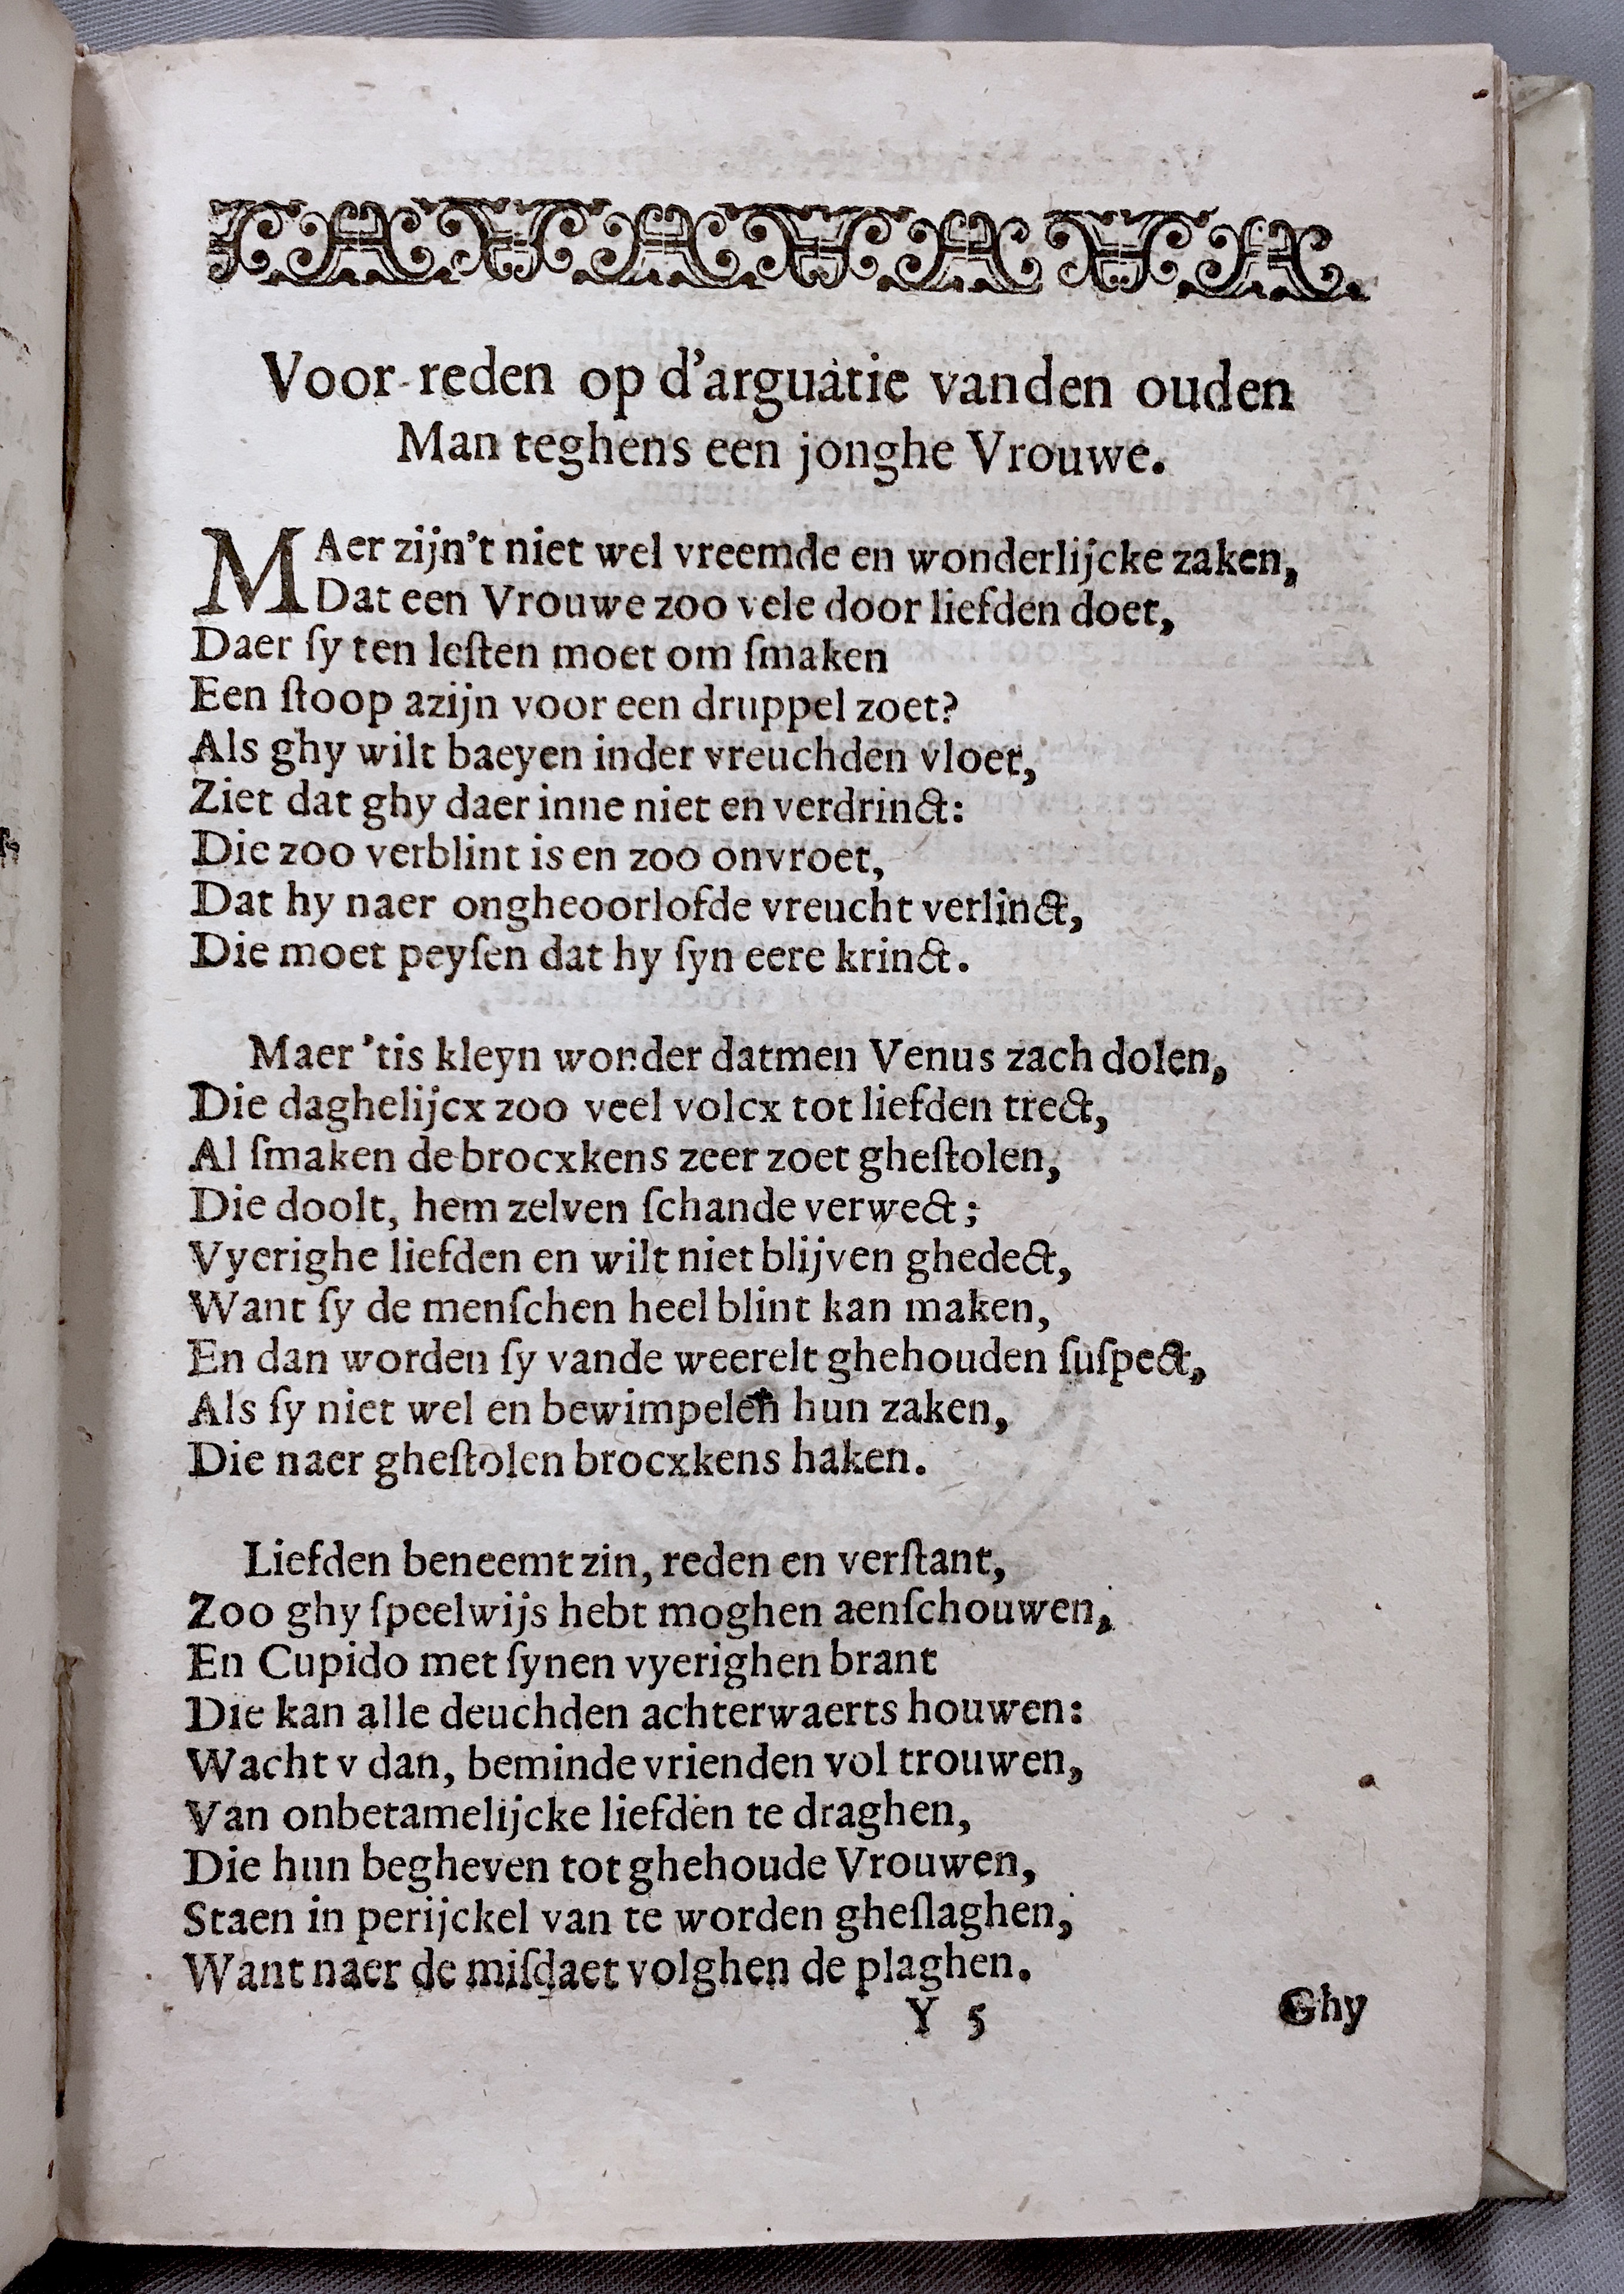 Voor-reden op d'arguatie vanden ouden
Man teghens een jonghe Vrouwe.
MAer zijn't niet wel vreemde en wonderlijcke zaken,
Dat een Vrouwe zoo vele door liefden doet,
Daer ſy ten leſten moet om ſmaken
Een ſtoop azijn voor een druppel zoet?
Als ghy wilt baeyen inder vreuchden vloet,
Ziet dat ghy daer inne niet en verdrinct:
Die zoo verblint is en zoo onvroet,
Dat hy naer ongheoorlofde vreucht verlinct,
Die moet peyſen dat hy ſyn eere krinct.
Maer 'tis kleyn wonder datmen Venus zach dolen,
Die daghelijcx zoo veel volcx tot liefden trect,
Al ſmaken de brocxkens zeer zoet gheſtolen,
Die doolt, hem zelven ſchande verwect;
Vyerighe liefden en wilt niet blijven ghedect,
Want ſy de menſchen heel blint kan maken,
En dan worden ſy vande weerelt ghehouden ſuſpect,
Als ſy niet wel en bewimpelen hun zaken,
Die naer gheſtolen brocxkens haken.
Liefden beneemt zin, reden en verſtant,
Zoo ghy ſpeelwijs hebt moghen aenſchouwen,
En Cupido met ſynen vyerighen brant
Die kan alle deuchden achterwaerts houwen:
Wacht v dan, beminde vrienden vol trouwen,
Van onbetamelijcke liefden te draghen,
Die hun begheven tot ghehoude Vrouwen,
Staen in perijckel van te worden gheſlaghen,
Want naer de miſdaet volghen de plaghen.
Y 5
Ghy